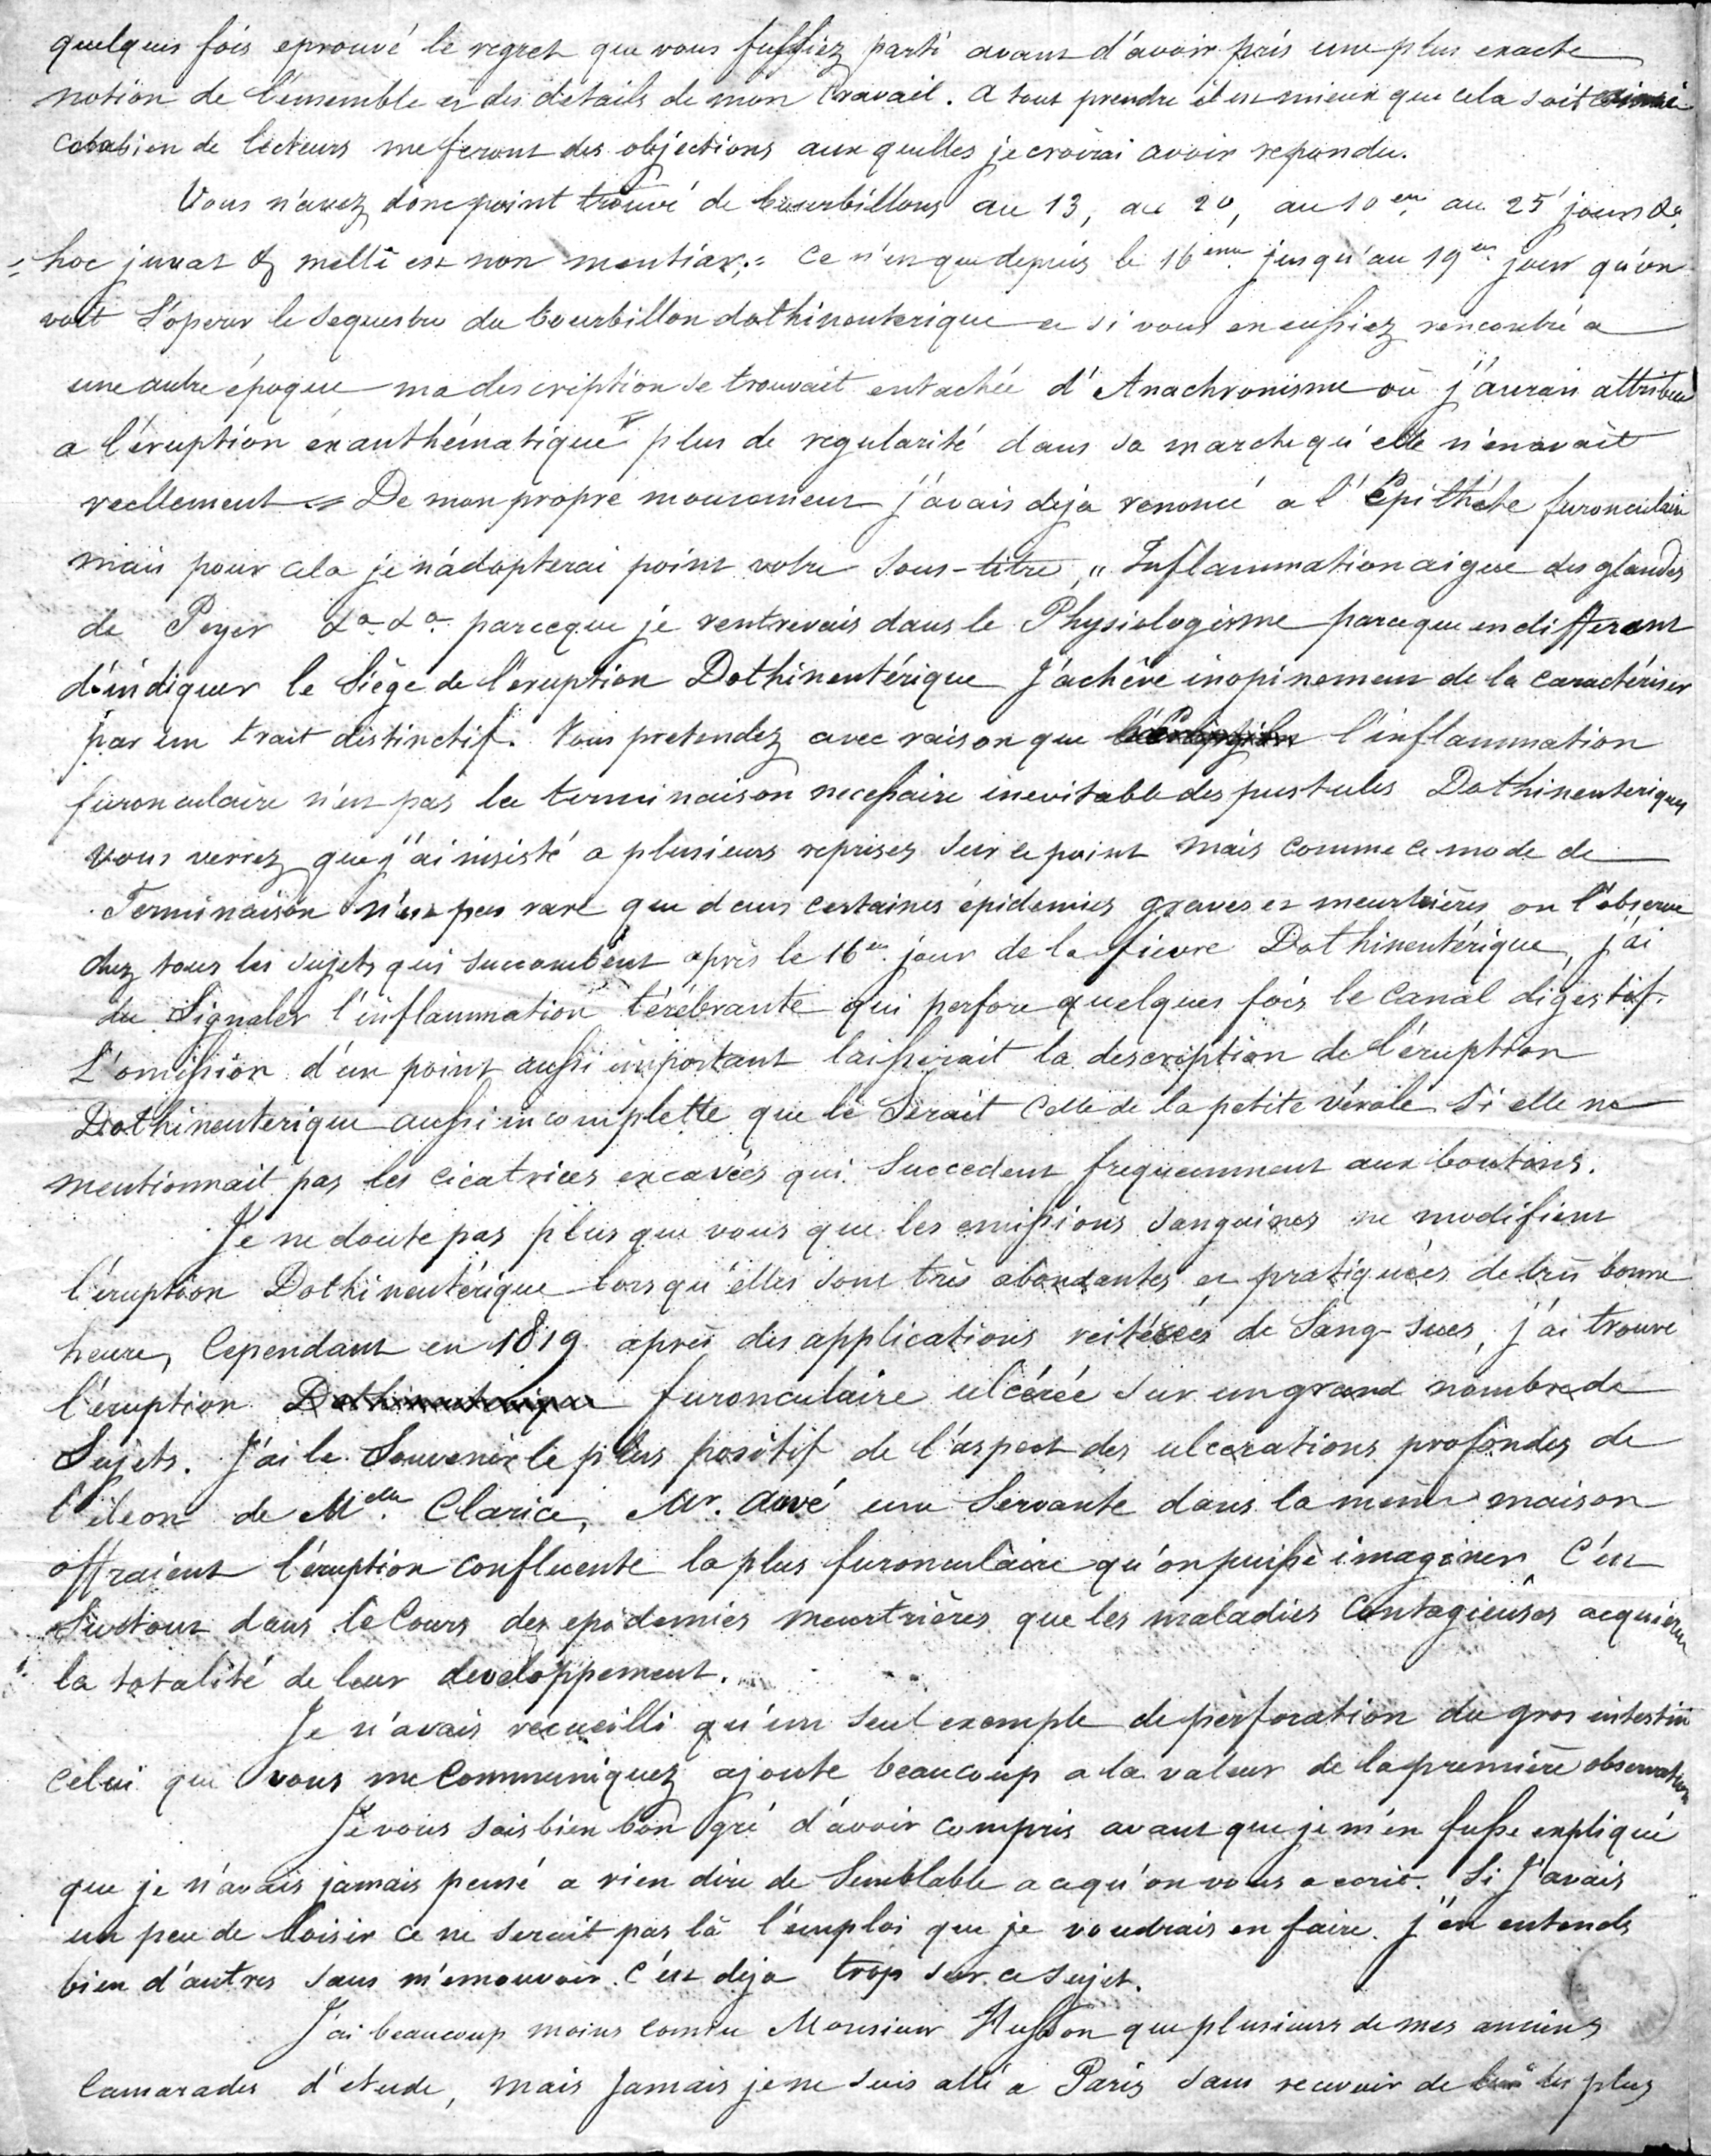 quelques fois eprouvé le regret que vous fussiez parti avant d'avoir pris une plus exacte
notion de l'ensemble et des details de mon travail. a tout prendre il est mieux que cela soit ainsi
de lecteurs me feront des objections aux quelles je croirai avoir repondu.
Vous n'avez donc point trouvé de bourbillons au 13, au 20, au 10em au 25 jours &a
= hoc juvat & melli est non mentiar,= ce n'est que depuis le 16ème jusqu'au 19em jour qu'on
voit s'operer le sequestre du bourbillon dothinenterique et si vous en eussiez rencontré a
une autre époque ma description se trouvait entachée d'Anachronisme où j'aurais attribué
a l'éruption exanthématique plus de regularité dans sa marche qu'elle n'en avait
reellement = De mon propre mouvement j'avais deja renoncé a l'Epithéte furonculaire
mais pour cela je n'adopterai point votre Sous-titre, " Inflammation aigue des glandes
de Peyer &a &a parceque je rentrerais dans le Physiologisme parceque en differant
d'indiquer le Siège de l'éruption Dothinentérique J'achève inopinement de la caractériser
par un trait distinctif. Vous pretendez avec raison que l'inflammation
furonculaire n'est pas la terminaison necessaire inevitable des pustules Dothinenteriques
vous verrez que j'ai insisté a plusieurs reprises sur ce point mais comme ce mode de
Terminaison n'est pas rare que dans certaines épidemies graves et meurtrières on l'observe
chez tous les sujets qui succombent après le 16em jour de la fievre Dothinentérique, j'ai
du Signaler l'inflammation térébrante qui perfore quelques fois le canal digestif.
L'omission d'un point aussi important laisserait la description de l'éruption
Dothinenterique aussi incomplette que le Serait celle de la petite vérole si elle ne
mentionnait pas les cicatrices excavées qui Succedent frequemment aux boutons.
Je ne doute pas plus que vous que les emissions sanguines ne modifient
l'éruption Dothinentérique lorsqu'elles sont très abondantes et pratiquées de très bonne
heure, Cependant en 1819 après des applications reitérées de Sang-sues, j'ai trouvé
l'éruption Dothinenterique furonculaire ulcérée sur un grand nombre de
Sujets. J'ai le Souvenir le plus positif de l'aspect des ulcerations profondes de
l'ileon de Melle Clarice, Mr. Davé une Servante dans la même maison
offraient l'éruption confluente la plus furonculaire qu'on puisse imaginer C'est
Surtout dans le Cours des epidemies meurtrières que les maladies Contagieuses acquièrent
la totalité de leur developpement.
Je n'avais recueilli qu'un seul exemple de perforation du gros intestin
celui que vous me communiquez ajoute beaucoup a la valeur de la première observation
Je vous sais bien bon gré d'avoir compris avant que je m'en fusse expliqué
que je n'avais jamais pensé a rien dire de Semblable a ce qu'on vous a ecrit. Si J'avais
un peu de loisir ce ne serait pas là l'emploi que je voudrais en faire. j'en entends
bien d'autres sans m'emouvoir. C'est deja trop sur ce sujet.
J'ai beaucoup moins connu Monsieur Husson que plusieurs de mes anciens
Camarades d'etude, mais Jamais je ne suis allé a Paris sans recevoir de lui les plus